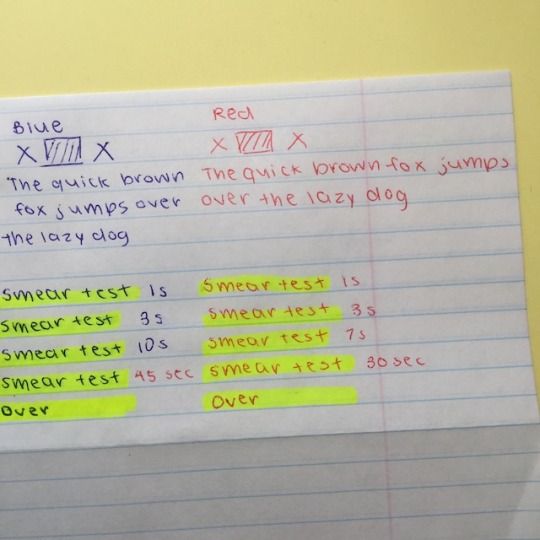 Blue
X X
The quick brown
fox jumps over
the lazy dog
smear test 1s
smear test 3s
smear test 10s
smear test 45 sec
over
Red
X X
The quick brown fox jumps
over the lazy dog
smear test 1s
smear test 3s
smear test 7s
smear test 30 sec
over